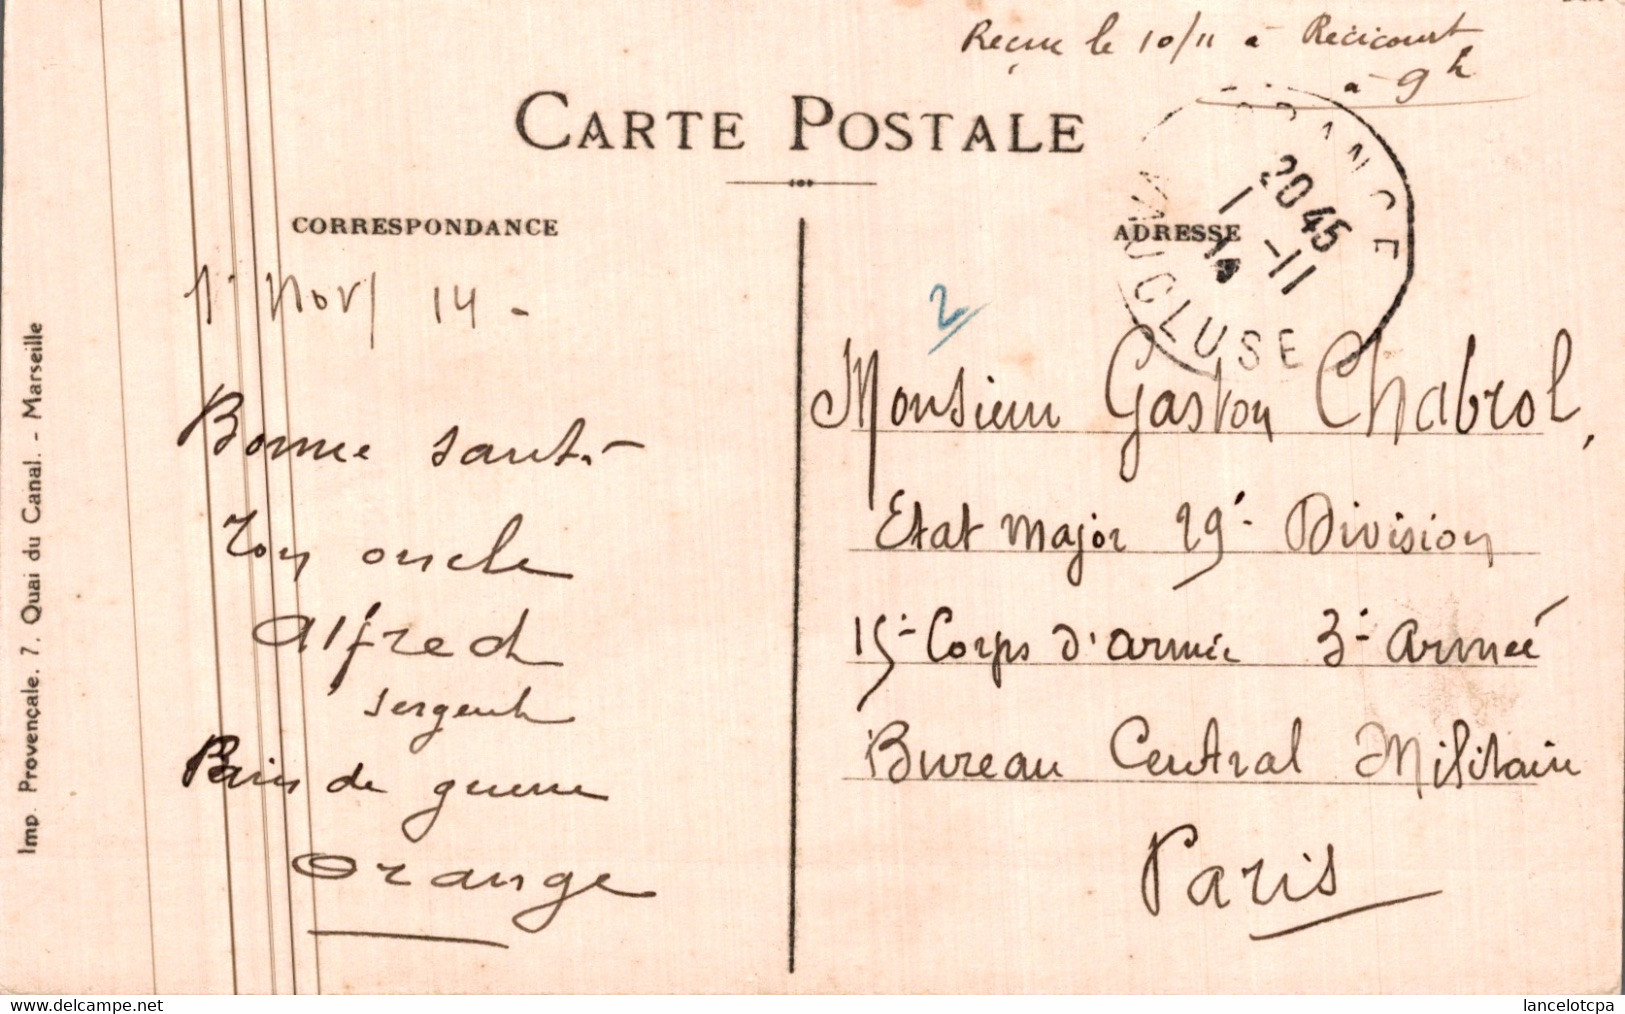 Reçue le 10/11 à Récicourt
à 9h
CARTE POSTALE
CORRESPONDANCE
ADRESSE
ORANGE
20 45
1 -11
14
VAUCLUSE
1r Nov 14 -
Bonne santé
Ton oncle
Alfred
sergent
Pain de guerre
Orange
2
Monsieur Gaston Chabrol,
Etat Major 29e Division
15e Corps d'armée 3e Armée
Bureau Central Militaire
Paris
Imp. Provençale. 7. Quai du Canal. - Marseille
www.delcampe.net
lancelotcpa